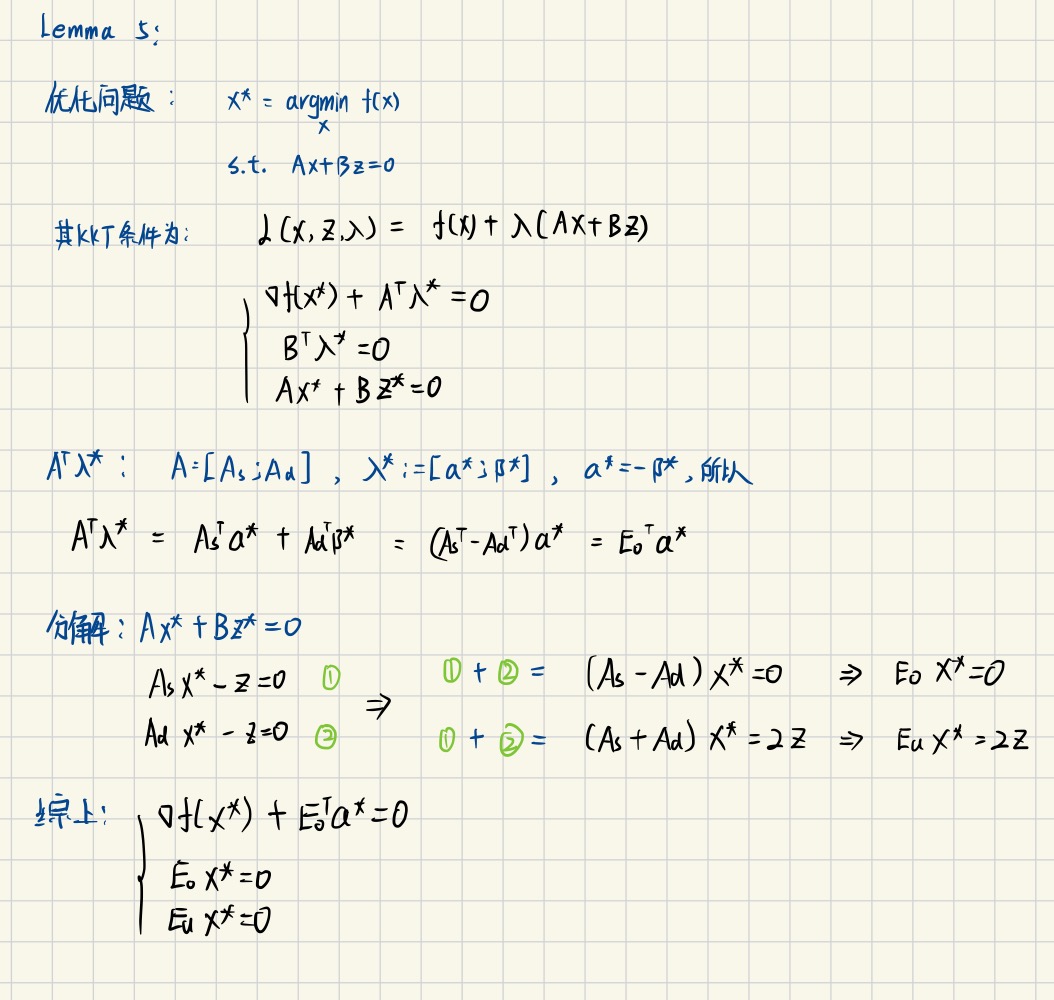 Lemma 5:
优化问题: x* = argmin f(x)
x
s.t. Ax+Bz=0
其KKT条件为: L(x,z,λ) = f(x) + λ(Ax+Bz)
∇f(x*) + Aᵀλ* = 0
Bᵀλ* = 0
Ax* + Bz* = 0
Aᵀλ*: A=[As;Ad], λ*:=[a*;β*], a*=-β*,所以
Aᵀλ* = Asᵀa* + Adᵀβ* = (Asᵀ-Adᵀ)a* = E₀ᵀa*
分解: Ax* + Bz* = 0
Asx* - z = 0 ① ① + ② = (As - Ad)x* = 0 ⇒ E₀ x* = 0
⇒
Ad x* - z = 0 ② ① + ② = (As + Ad) x* = 2z ⇒ Eu x* = 2z
综上: ∇f(x*) + E₀ᵀa* = 0
E₀ x* = 0
Eu x* = 0